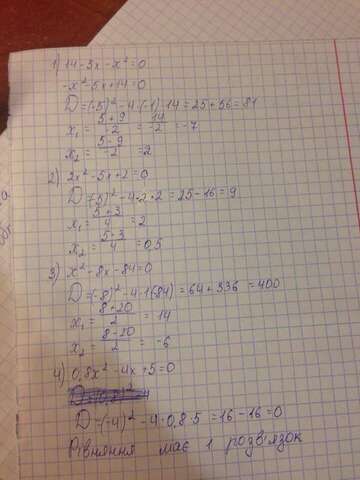 1) 14-5x-x²=0
-x²-5x+14=0
D=(-5)²-4·(-1)·14=25+56=81
x₁= 5+9/-2 = 14/-2 =-7
x₂= 5-9/-2 =2
2) 2x²-5x+2=0
D=(-5)²-4·2·2=25-16=9
x₁= 5+3/4 =2
x₂= 5-3/4 =0,5
3) x²-8x-84=0
D=(-8)²-4·1·(84)=64+336=400
x₁= 8+20/2 = 14
x₂= 8-20/2 = -6
4) 0,8x²-4x+5=0
D=(-4)²-4·0,8·5=16-16=0
Рівняння має 1 розв'язок